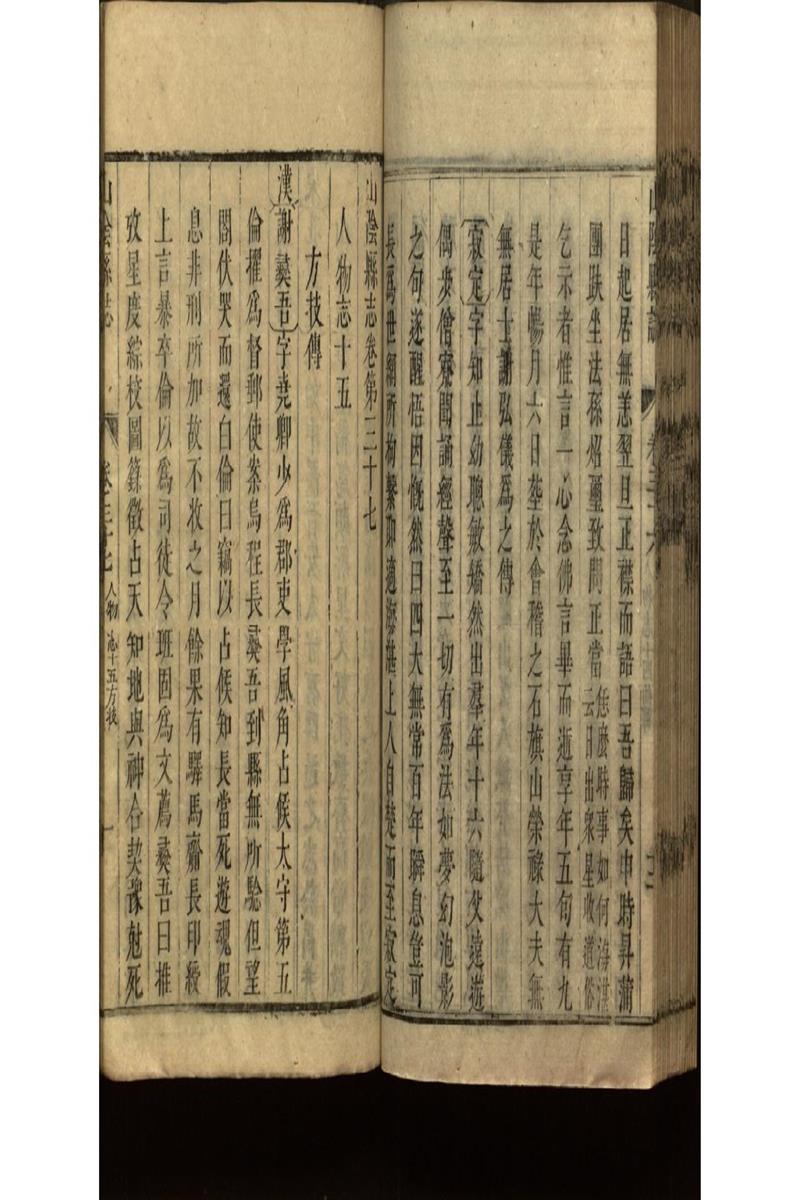 山陰縣志
卷三十六
十二
日起居無恙翌旦正襟而語曰吾歸矣申時昇蒲
團趺坐法孫炤璽致問正當恁麼時事如何海淇云日出衆星收道俗
乞示者惟言一心念佛言畢而逝享年五旬有九
是年暢月六日塟於會稽之石旗山榮祿大夫無
無居士謝弘儀為之傳
寂定字知止幼聰敏矯然出羣年十六隨父遠遊
偶步僧寮聞誦經聲至一切有爲法如夢幻泡影
之句遂醒悟因慨然曰四大無常百年瞬息豈可
長爲世網所拘繫即適海湛上人自楚而至寂定
山陰縣志卷第三十七
人物志十五
方技傳
漢謝夷吾字堯卿少爲郡吏學風角占候太守第五
倫擢爲督郵使案烏程長夷吾到縣無所驗但望
閣伏哭而還白倫曰竊以占候知長當死遊魂假
息非刑所加故不收之月餘果有驛馬齎長印綬
上言暴卒倫以爲司徒令班固爲文薦夷吾曰推
攷星度綜校圖錄徵占天知地與神合契豫尅死
山陰縣志
卷三十七 人物志十五方技
一